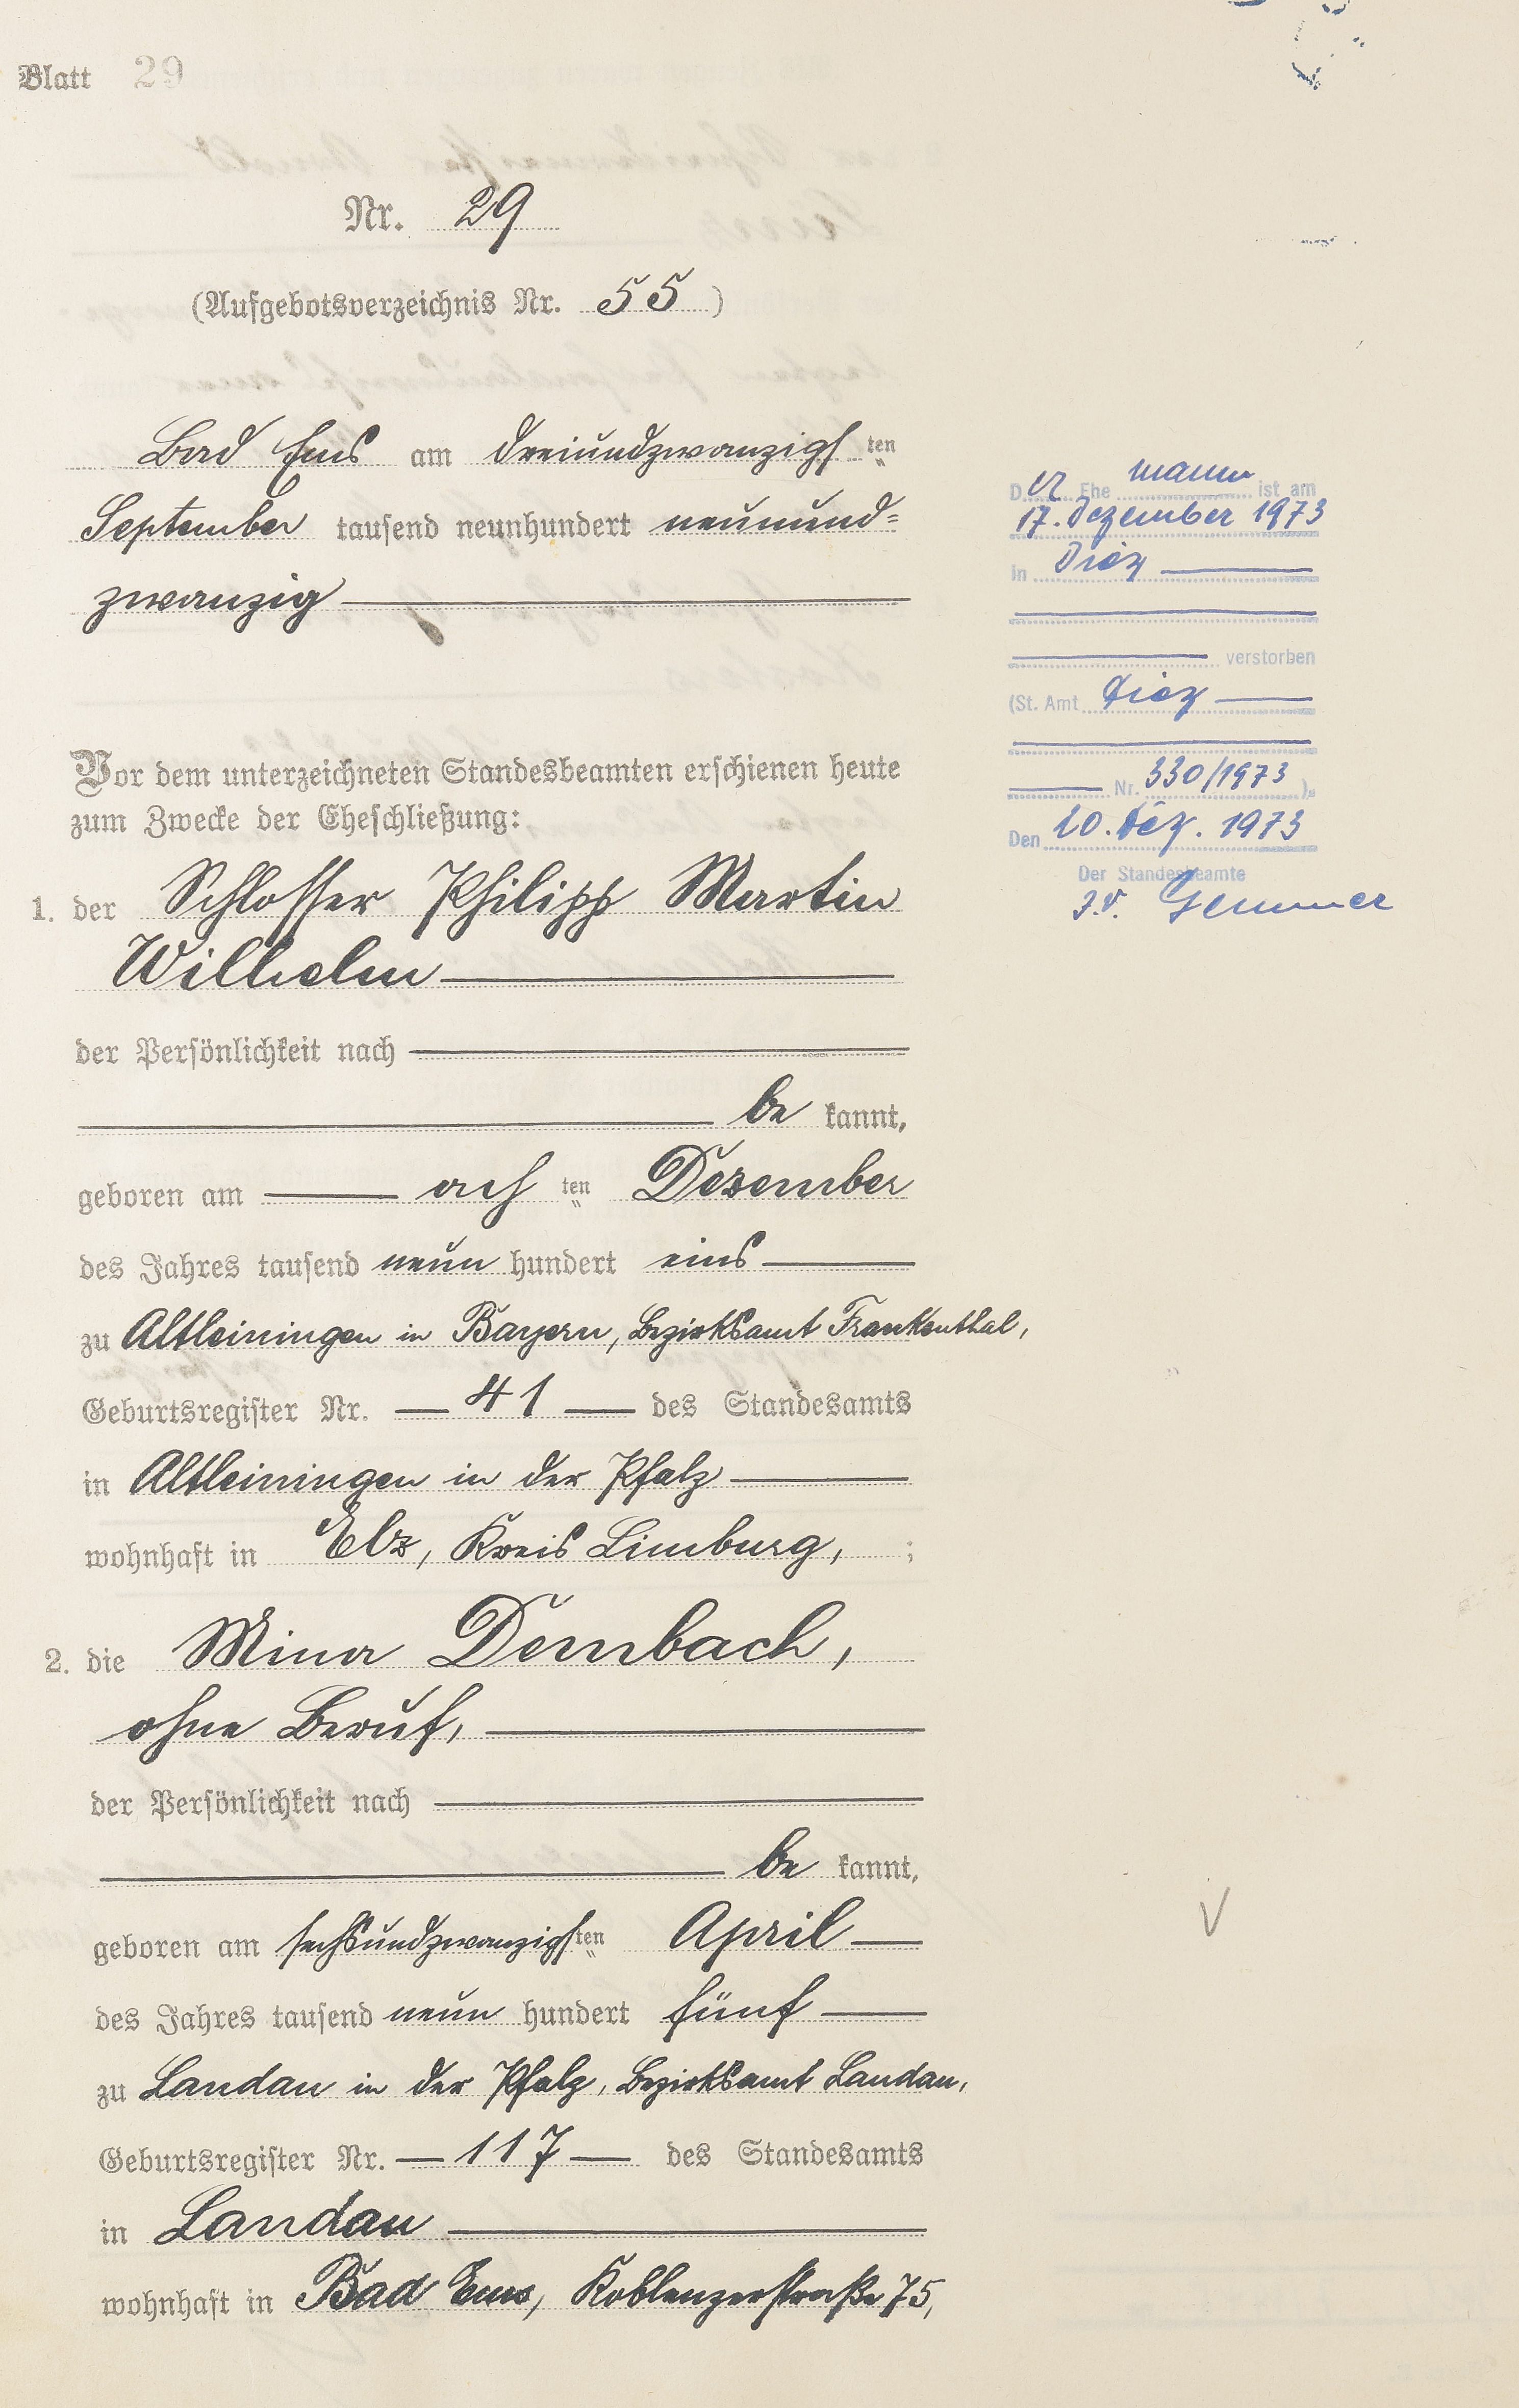 Blatt 29
Nr. 29
(Aufgebotsverzeichnis Nr. 55)
Bad Ems am dreiundzwanzigsten
September tausend neunhundert neunund=
zwanzig
Vor dem unterzeichneten Standesbeamten erschienen heute
zum Zwecke der Eheschließung:
1. der Schlosser Philipp Martin
Wilhelm
der Persönlichkeit nach
be kannt,
geboren am achten Dezember
des Jahres tausend neun hundert eins
zu Altleiningen in Bayern, Bezirksamt Frankenthal,
Geburtsregister Nr. 41 des Standesamts
in Altleiningen in der Pfalz
wohnhaft in Elz, Kreis Limburg, ;
2. die Mina Dembach,
ohne Beruf,
der Persönlichkeit nach
be kannt,
geboren am sechsundzwanzigsten April
des Jahres tausend neun hundert fünf
zu Landau in der Pfalz, Bezirksamt Landau,
Geburtsregister Nr. 117 des Standesamts
in Landau
wohnhaft in Bad Ems, Koblenzerstraße 75,
Der Ehe mann ist am
17. Dezember 1973
in Diez
verstorben
(St. Amt Diez
Nr. 330/1973 ).
Den 20. Dez. 1973
Der Standesbeamte
I.V. Gemmer